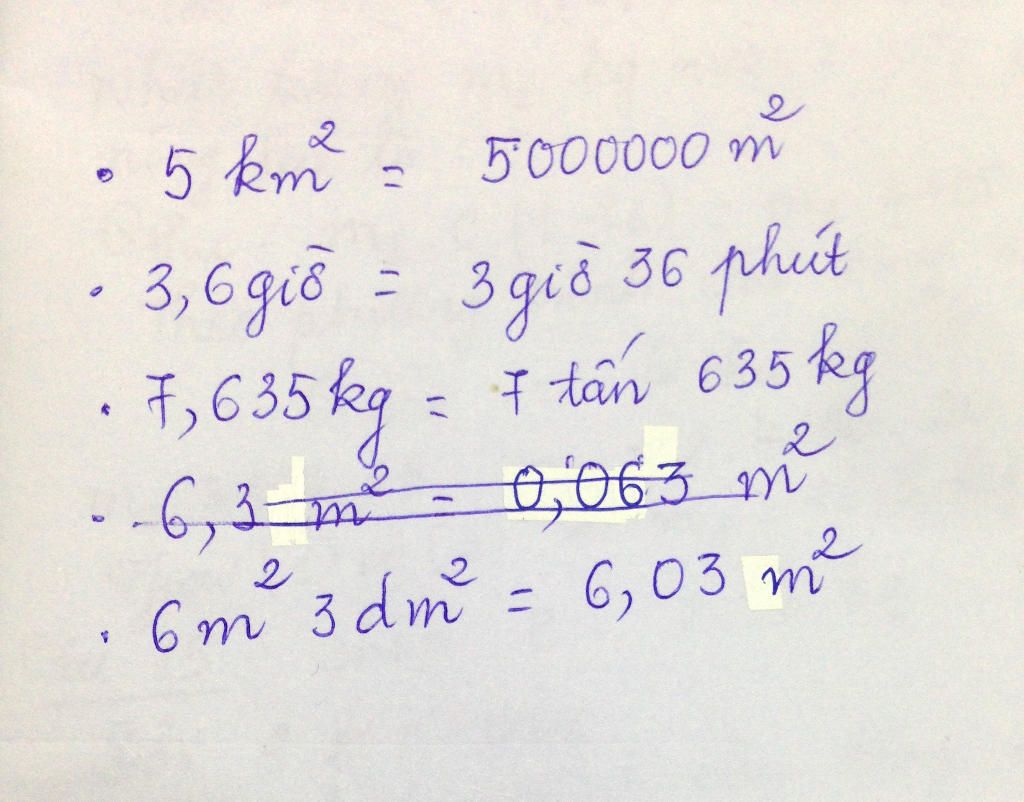 • 5 km² = 5000000 m²
• 3,6 giờ = 3 giờ 36 phút
• 7,635 kg = 7 tấn 635 kg
• 6,3 m² = 0,063 m²
• 6 m² 3 dm² = 6,03 m²